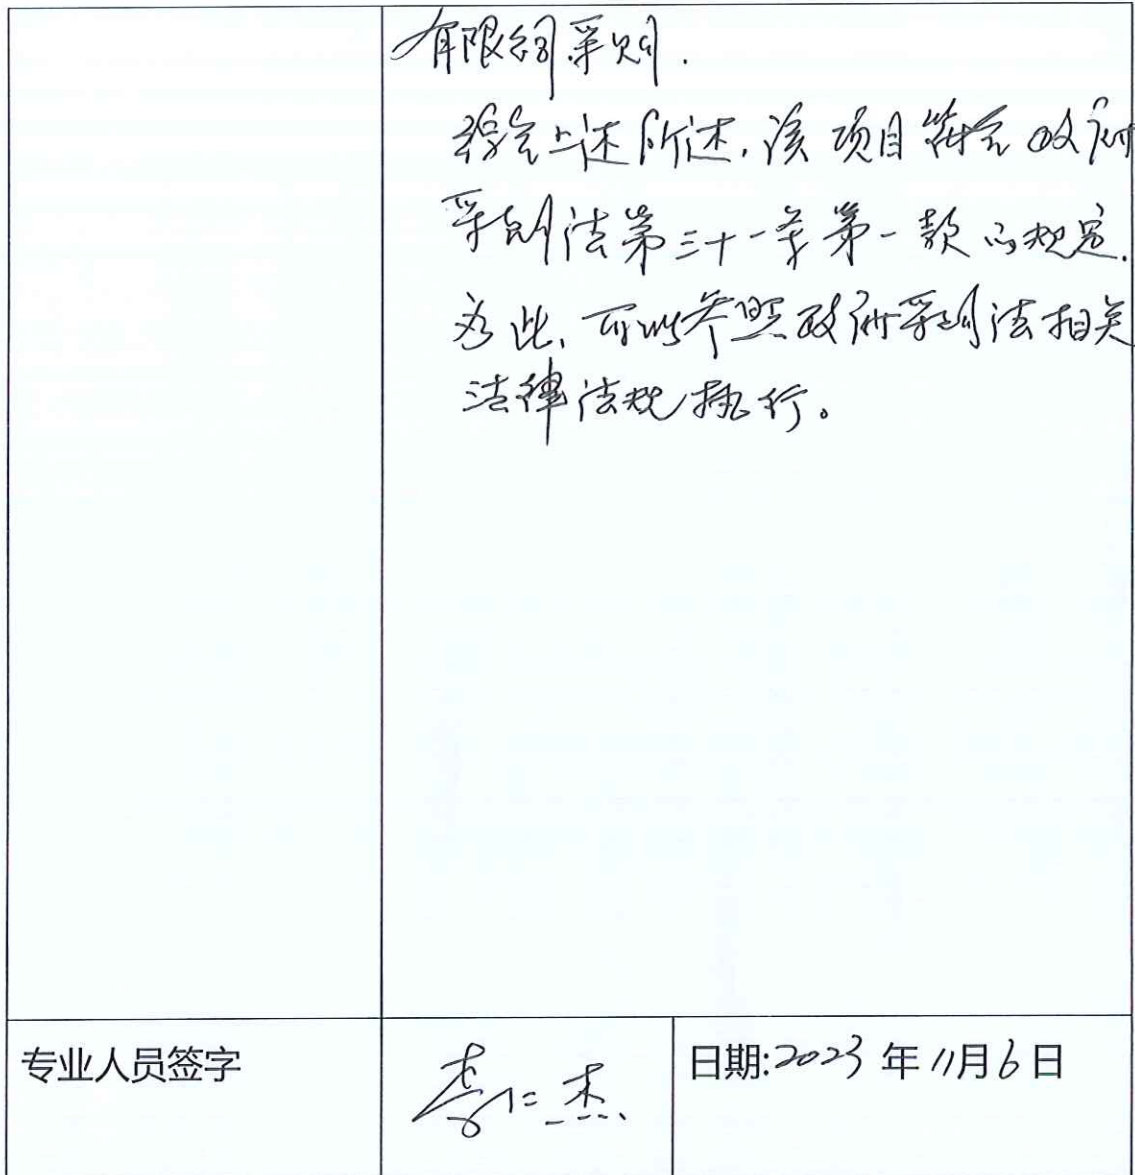 有限公司采购.
综合上述所述,该项目符合政府
采购法第三十一条第一款的规定.
为此,可以参照政府采购法相关
法律法规执行。
专业人员签字
李仁杰
日期:2023年11月6日